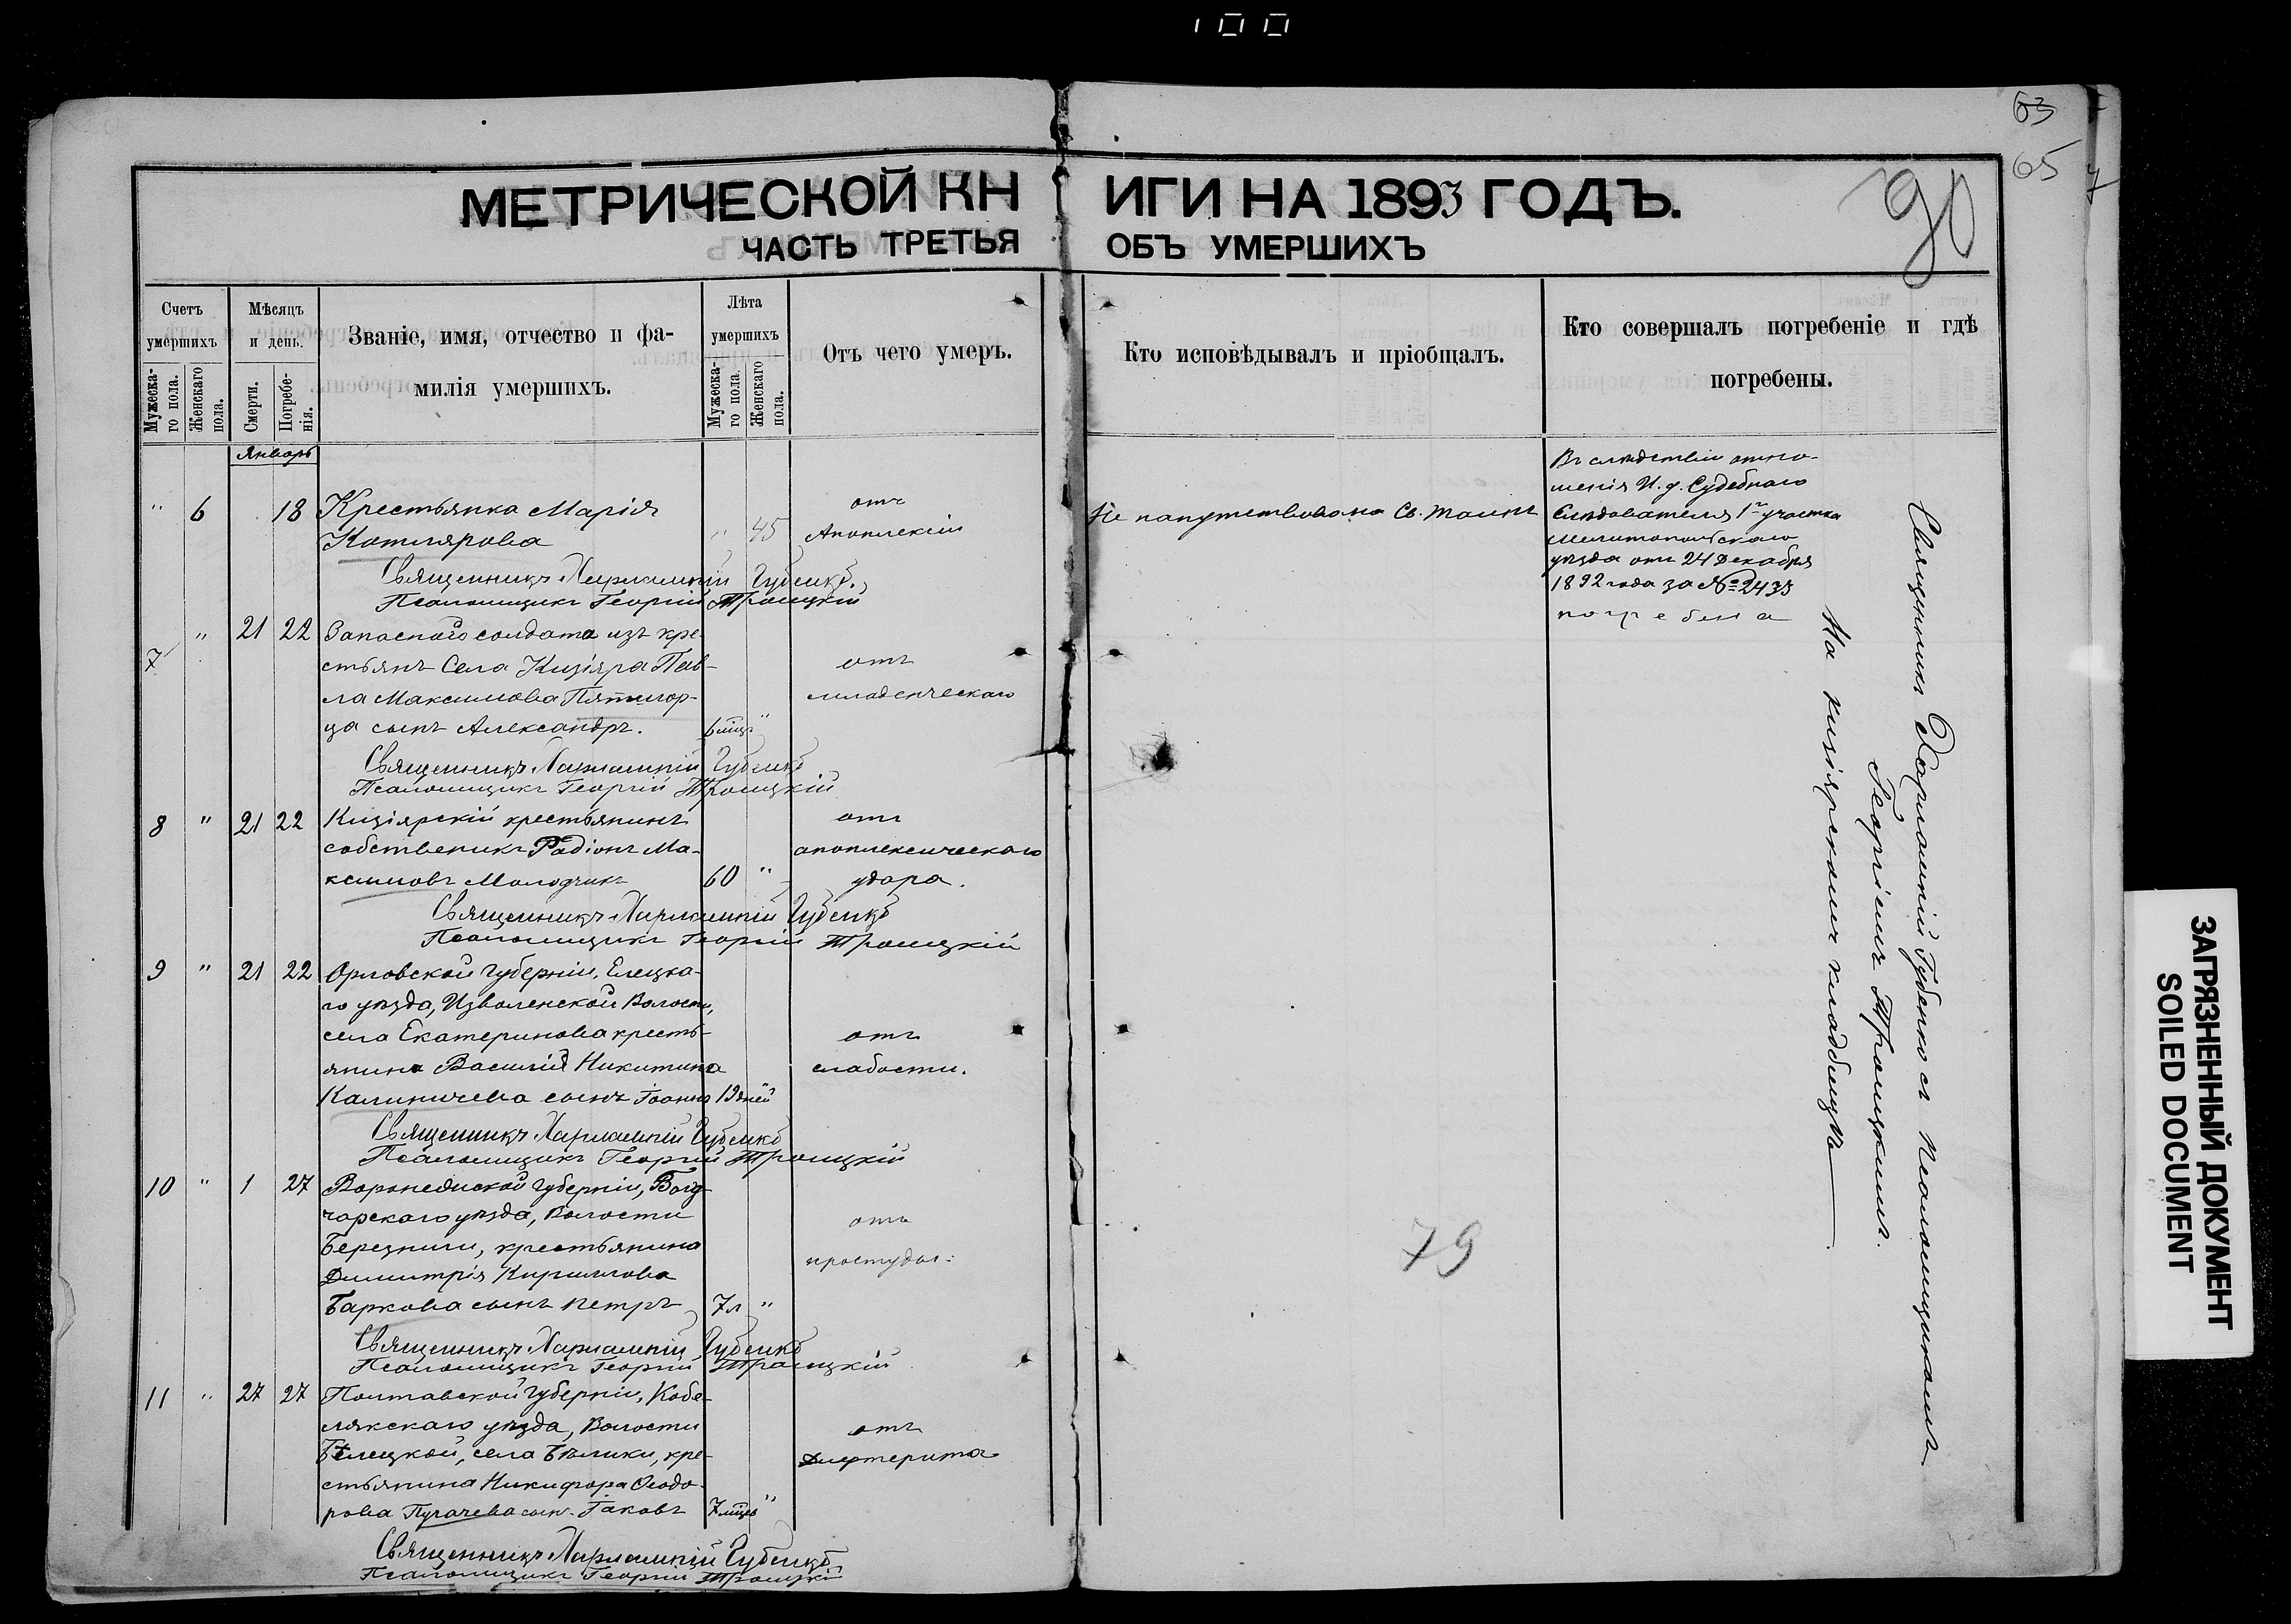 100
63
65
90
МЕТРИЧЕСКОЙ КНИГИ НА 1893 ГОДЪ.
ЧАСТЬ ТРЕТЬЯ ОБЪ УМЕРШИХЪ
Счетъ умершихъ
Мужескаго пола.
Женскаго пола.
Мѣсяцъ и день.
Смерти.
Погребенія.
Званіе, имя, отчество и фамилія умершихъ.
Лѣта умершихъ
Мужескаго пола.
Женскаго пола.
Отъ чего умеръ.
Кто исповѣдывалъ и пріобщалъ.
Кто совершалъ погребеніе и гдѣ погребены.
Январь
" 6 18 Крестьянка Марія
Котлярова
" 45
отъ
Апоплексіи
Не напутствована Св. Таинъ
Въ слѣдствіи отно-
шенія И. д. Судебнаго
Слѣдователя 1го участка
Мелитопольскаго
уѣзда отъ 24 Декабря
1892 года за № 2435
погребена
Священникъ Харлампій Губенко.
Псаломщикъ Георгій Троицкій
7 " 21 22 Запаснаго солдата изъ кре-
стьянъ Села Кизіяра Пав-
ла Максимова Пятигор-
ца сынъ Александръ.
6 мцъ "
отъ
младенческаго
Священникъ Харлампій Губенко
Псаломщикъ Георгій Троицкій
8 " 21 22 Кизіярскій крестьянинъ
собственникъ Радіонъ Ма-
ксимовъ Молодчикъ
60 "
отъ
апоплексическаго
удара.
Священникъ Харлампій Губенко
Псаломщикъ Георгій Троицкій
9 " 21 22 Орловской Губерніи, Елецка-
го уѣзда, Изволенской Волости,
села Екатеринова кресть-
янина Василія Никитина
Калиничева сынъ Іоаннъ
19 дней
отъ
слабости.
Священникъ Харлампій Губенко
Псаломщикъ Георгій Троицкій
10 " 1 27 Воронежской Губерніи, Богу-
чарскаго уѣзда, Волости
Березниги, крестьянина
Димитрія Кириллова
Баркова сынъ Петръ
7 л "
отъ
простуды.
Священникъ Харлампій Губенко
Псаломщикъ Георгій Троицкій
11 " 27 27 Полтавской Губерніи, Кобе-
лякскаго уѣзда, Волости
Бѣлецкой, села Бѣлики, кре-
стьянина Никифора Ѳеодо-
рова Пугачева сынъ Іаковъ
7 мцъ "
отъ
Дифтерита
Священникъ Харлампій Губенко
Псаломщикъ Георгій Троицкій
Священникъ Харлампій Губенко съ Псаломщикомъ
Георгіемъ Троицкимъ.
На кизіярскомъ кладбищѣ
79
ЗАГРЯЗНЕННЫЙ ДОКУМЕНТ
SOILED DOCUMENT